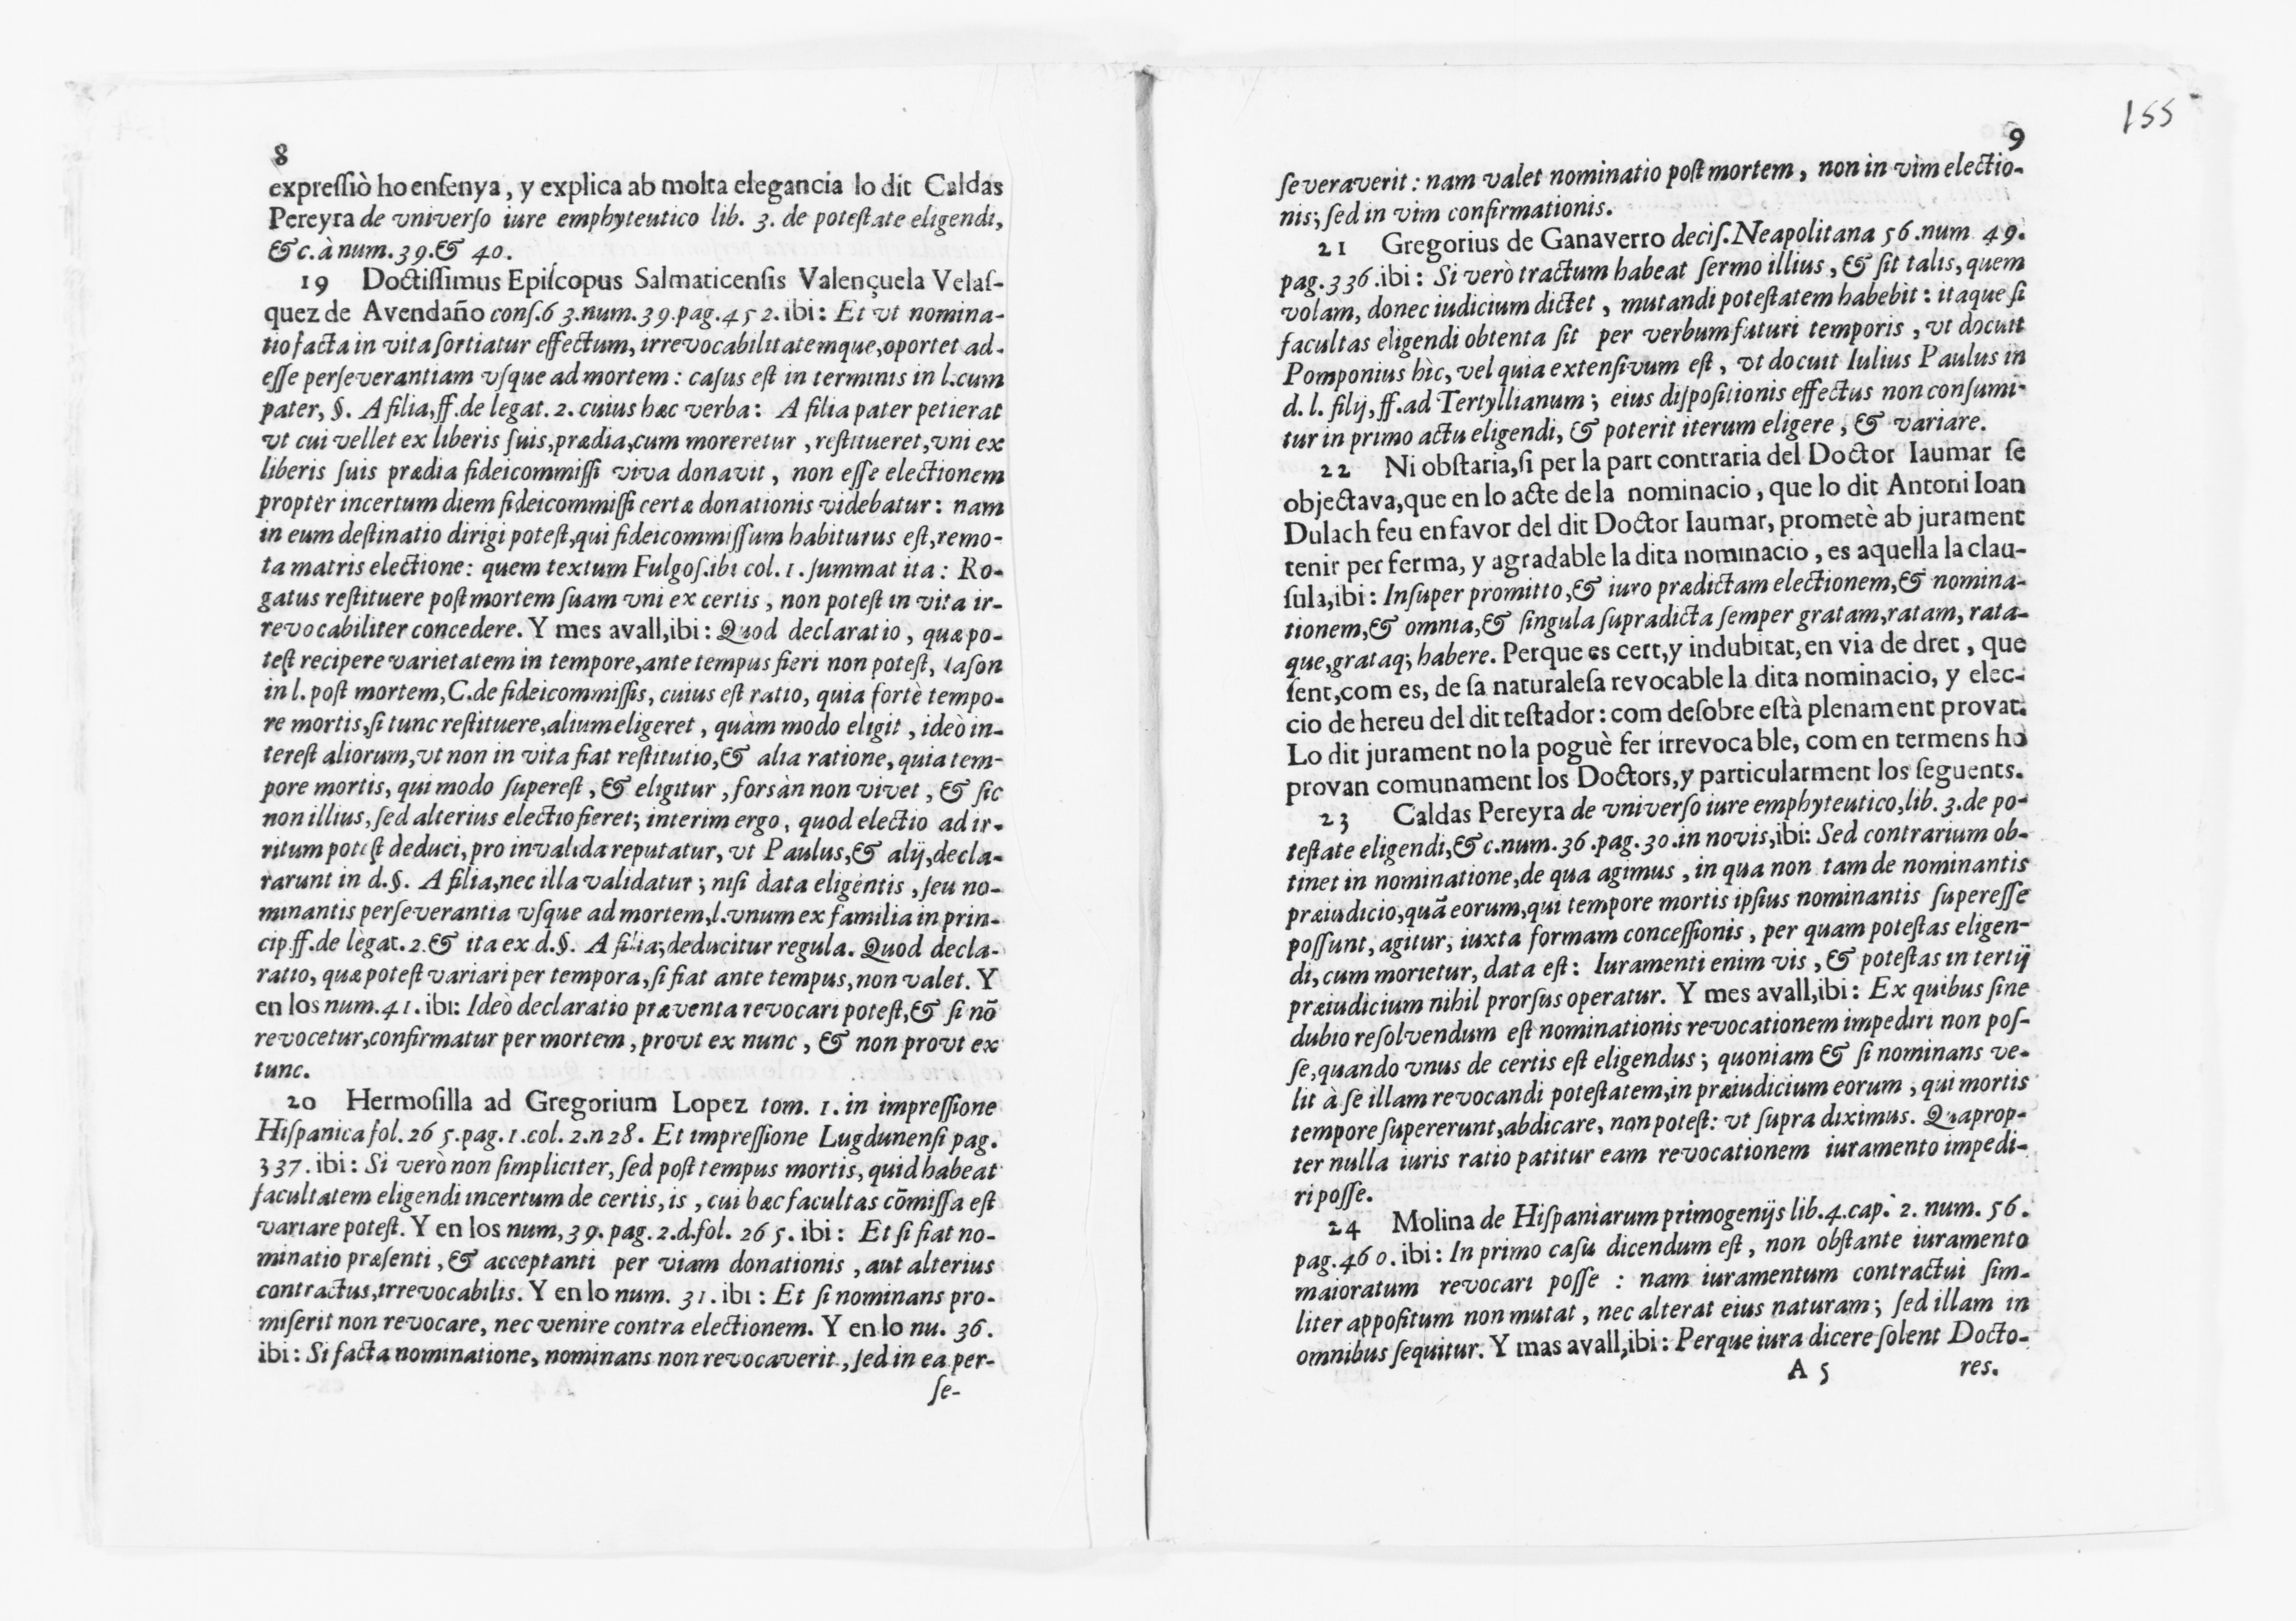 8
expressiò ho ensenya, y explica ab molta elegancia lo dit Caldas
Pereyra de vniverso iure emphyteutico lib. 3. de potestate eligendi,
& c. à num. 39. & 40.
19 Doctissimus Episcopus Salmaticensis Valençuela Velas-
quez de Avendaño cons. 63. num. 39. pag. 452. ibi: Et vt nomina-
tio facta in vita sortiatur effectum, irrevocabilitatemque, oportet ad-
esse perseverantiam vsque ad mortem: casus est in terminis in l. cum
pater, §. A filia, ff. de legat. 2. cuius hæc verba: A filia pater petierat
vt cui vellet ex liberis suis, prædia, cum moreretur, restitueret, vni ex
liberis suis prædia fideicommissi viva donavit, non esse electionem
propter incertum diem fideicommissi certæ donationis videbatur: nam
in eum destinatio dirigi potest, qui fideicommissum habiturus est, remo-
ta matris electione: quem textum Fulgos. ibi col. 1. summat ita: Ro-
gatus restituere post mortem suam vni ex certis, non potest in vita ir-
revocabiliter concedere. Y mes avall, ibi: Quod declaratio, quæ po-
test recipere varietatem in tempore, ante tempus fieri non potest, Iason
in l. post mortem, C. de fideicommissis, cuius est ratio, quia fortè tempo-
re mortis, si tunc restituere, alium eligeret, quàm modo eligit, ideò in-
terest aliorum, vt non in vita fiat restitutio, & alia ratione, quia tem-
pore mortis, qui modo superest, & eligitur, forsàn non vivet, & sic
non illius, sed alterius electio fieret; interim ergo, quod electio ad ir-
ritum potest deduci, pro invalida reputatur, vt Paulus, & alij, decla-
rarunt in d. §. A filia, nec illa validatur; nisi data eligentis, seu no-
minantis perseverantia vsque ad mortem, l. vnum ex familia in prin-
cip. ff. de legat. 2. & ita ex d. §. A filia; deducitur regula. Quod decla-
ratio, quæ potest variari per tempora, si fiat ante tempus, non valet. Y
en los num. 41. ibi: Ideò declaratio præventa revocari potest, & si nõ
revocetur, confirmatur per mortem, provt ex nunc, & non provt ex
tunc.
20 Hermosilla ad Gregorium Lopez tom. 1. in impressione
Hispanica fol. 265. pag. 1. col. 2. n 28. Et impressione Lugdunensi pag.
337. ibi: Si verò non simpliciter, sed post tempus mortis, quid habeat
facultatem eligendi incertum de certis, is, cui hæc facultas cõmissa est
variare potest. Y en los num, 39. pag. 2. d. fol. 265. ibi: Et si fiat no-
minatio præsenti, & acceptanti per viam donationis, aut alterius
contractus, irrevocabilis. Y en lo num. 31. ibi: Et si nominans pro-
miserit non revocare, nec venire contra electionem. Y en lo nu. 36.
ibi: Si facta nominatione, nominans non revocaverit, sed in ea per-
se-
155
9
severaverit: nam valet nominatio post mortem, non in vim electio-
nis; sed in vim confirmationis.
21 Gregorius de Ganaverro decis. Neapolitana 56. num 49.
pag. 336. ibi: Si verò tractum habeat sermo illius, & sit talis, quem
volam, donec iudicium dictet, mutandi potestatem habebit: itaque si
facultas eligendi obtenta sit per verbum futuri temporis, vt docuit
Pomponius hìc, vel quia extensivum est, vt docuit Iulius Paulus in
d. l. filij, ff. ad Tertyllianum; eius dispositionis effectus non consumi-
tur in primo actu eligendi, & poterit iterum eligere, & variare.
22 Ni obstaria, si per la part contraria del Doctor Iaumar se
objectava, que en lo acte de la nominacio, que lo dit Antoni Ioan
Dulach feu en favor del dit Doctor Iaumar, prometè ab jurament
tenir per ferma, y agradable la dita nominacio, es aquella la clau-
sula, ibi: Insuper promitto, & iuro prædictam electionem, & nomina-
tionem, & omnia, & singula supradicta semper gratam, ratam, rata-
que, grataq; habere. Perque es cert, y indubitat, en via de dret, que
sent, com es, de sa naturalesa revocable la dita nominacio, y elec-
cio de hereu del dit testador: com desobre està plenament provat.
Lo dit jurament no la poguè fer irrevocable, com en termens ho
provan comunament los Doctors, y particularment los seguents.
23 Caldas Pereyra de vniverso iure emphyteutico, lib. 3. de po-
testate eligendi, & c. num. 36. pag. 30. in novis, ibi: Sed contrarium ob-
tinet in nominatione, de qua agimus, in qua non tam de nominantis
præiudicio, quã eorum, qui tempore mortis ipsius nominantis superesse
possunt, agitur, iuxta formam concessionis, per quam potestas eligen-
di, cum morietur, data est: Iuramenti enim vis, & potestas in tertij
præiudicium nihil prorsus operatur. Y mes avall, ibi: Ex quibus sine
dubio resolvendum est nominationis revocationem impediri non pos-
se, quando vnus de certis est eligendus; quoniam & si nominans ve-
lit à se illam revocandi potestatem, in præiudicium eorum, qui mortis
tempore supererunt, abdicare, non potest: vt supra diximus. Quaprop-
ter nulla iuris ratio patitur eam revocationem iuramento impedi-
ri posse.
24 Molina de Hispaniarum primogenijs lib. 4. cap. 2. num. 56.
pag. 460. ibi: In primo casu dicendum est, non obstante iuramento
maioratum revocari posse: nam iuramentum contractui sim-
liter appositum non mutat, nec alterat eius naturam; sed illam in
omnibus sequitur. Y mas avall, ibi: Perque iura dicere solent Docto-
A 5 res.